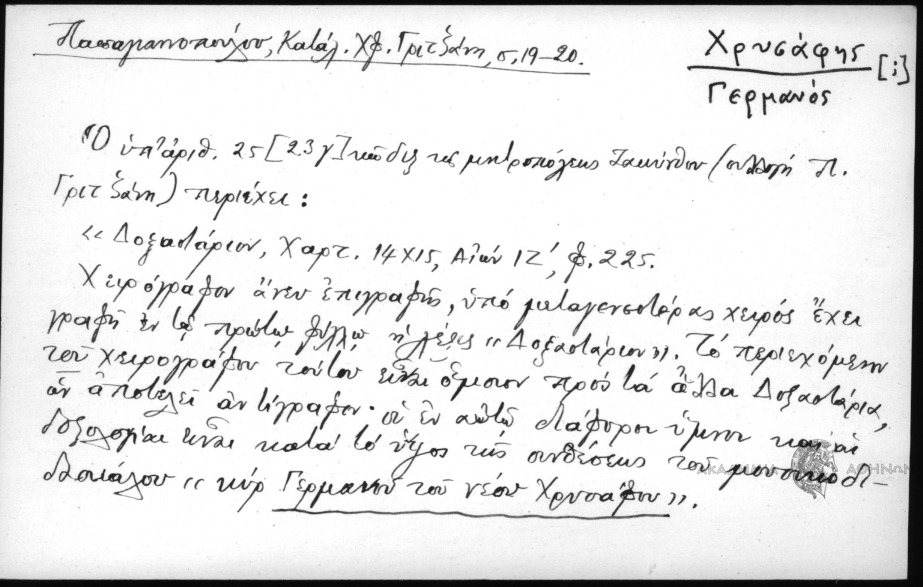 Παπαμανοπούλου, Κατάλ. Χφ. Γριτζάνη, σ. 19-20.
Χρυσάφης [;]
Γερμανός
Ὁ ὑπ' ἀριθ. 25 [23γ] κῶδιξ τῆς μητροπόλεως Ζακύνθου (συλλογή Π.
Γριτζάνη) περιέχει:
«Δοξαστάριον, Χαρτ. 14×15, Αἰών ΙΖ', φ. 225.
Χειρόγραφον ἄνευ ἐπιγραφῆς, ὑπό μεταγενεστέρας χειρός ἔχει
γραφῆ ἐν τῷ πρώτῳ φύλλῳ ἡ λέξις «Δοξαστάριον». Τό περιεχόμενον
τοῦ χειρογράφου τούτου εἶναι ὅμοιον πρός τά ἄλλα Δοξαστάρια,
ὧν ἀποτελεῖ ἀντίγραφον· οἱ ἐν αὐτῷ διάφοροι ὕμνοι καί αἱ
δοξολογίαι εἶναι κατά τό ὕφος τῆς συνθέσεως τοῦ μουσικοδι-
δασκάλου «κύρ Γερμανοῦ τοῦ νέου Χρυσάφου».
ΑΚΑΔΗΜΙΑ ΑΘΗΝΩΝ